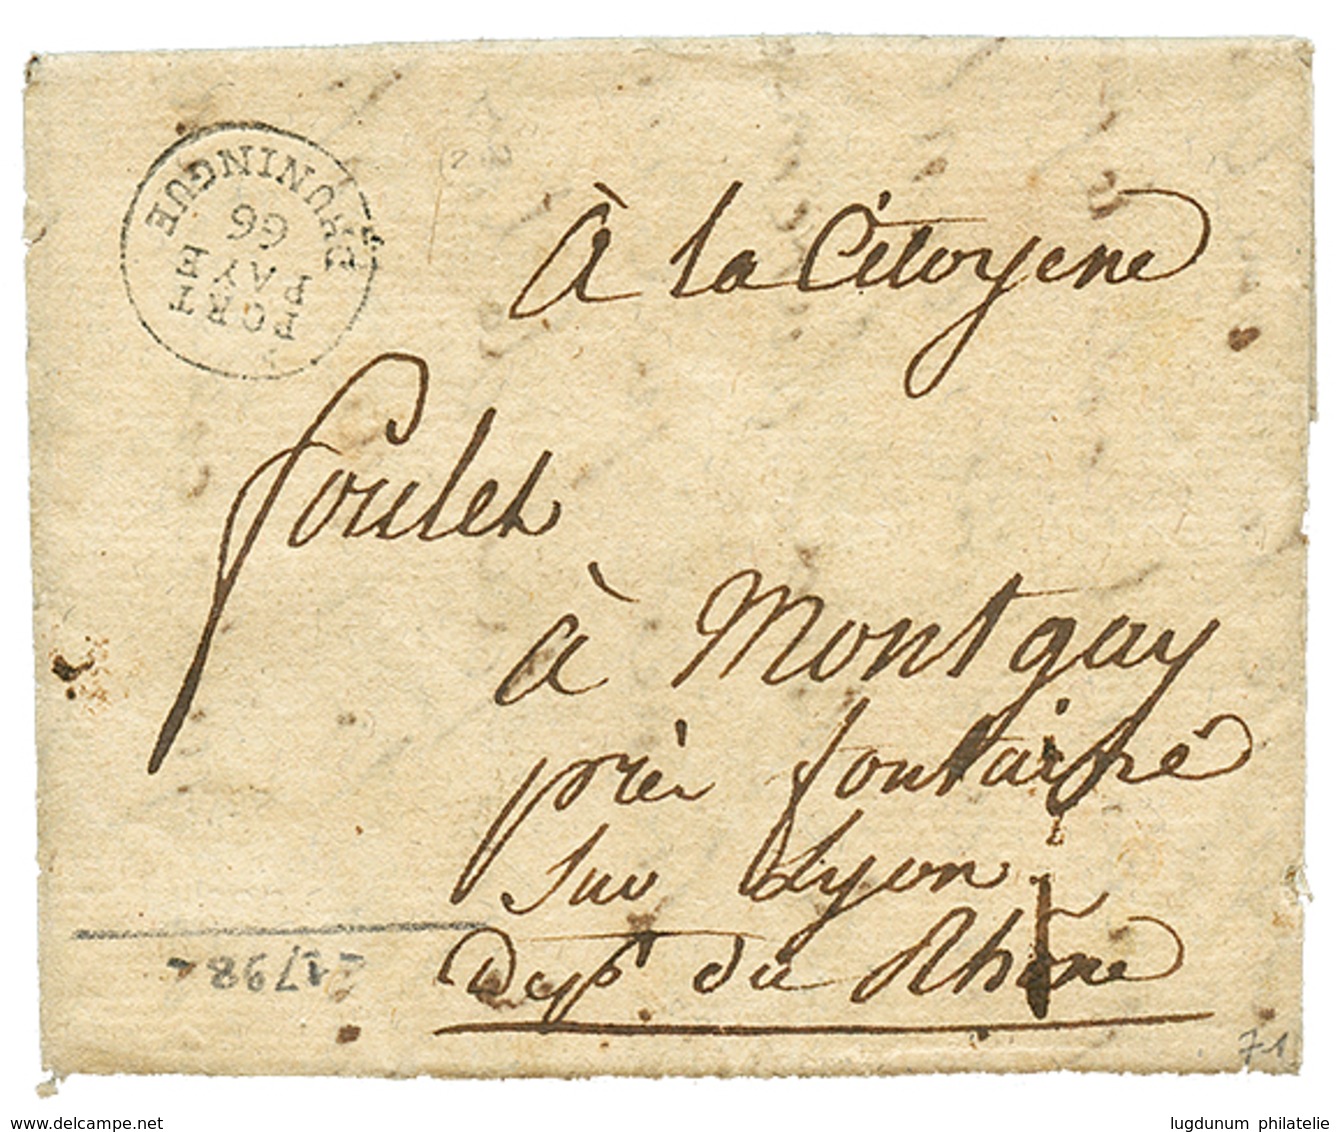 P.P. HUNINGUE
66
PORT
PAYE
À la Citoyene
Poulet
à Montgay
près fontaine
sur Lyon
Dept du Rhône
1798
71
www.delcampe.net
lugdunum philatelie